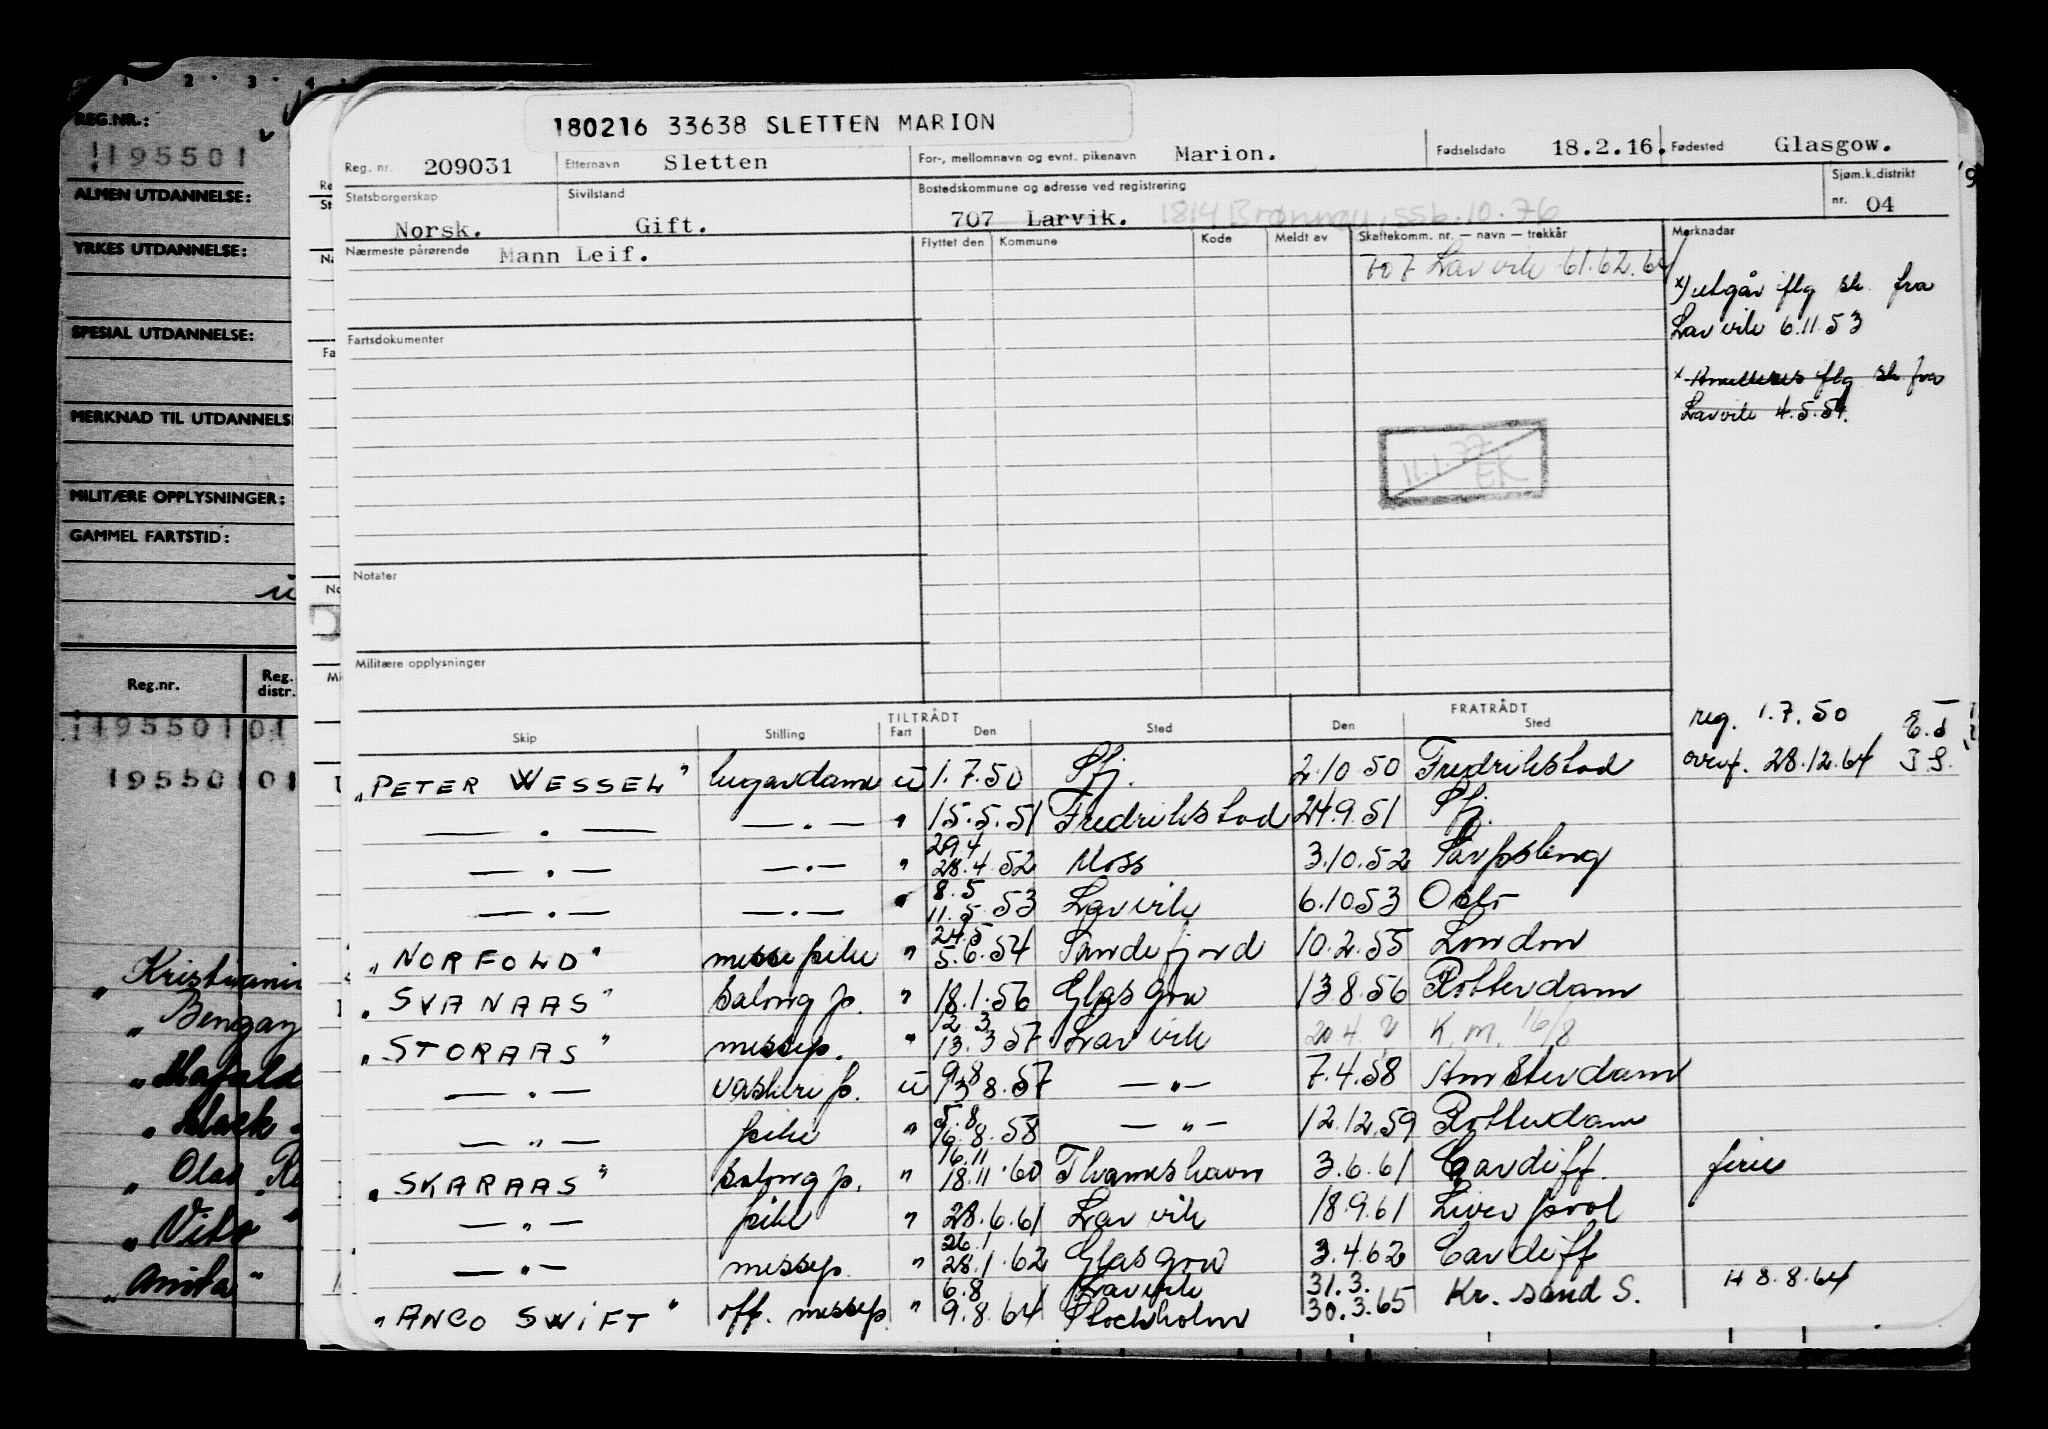 1 2 3 4
REG.NR.:
195501
ALMEN UTDANNELSE:
YRKES UTDANNELSE:
SPESIAL UTDANNELSE:
MERKNAD TIL UTDANNELS
MILITÆRE OPPLYSNINGER:
GAMMEL FARTSTID:
u
Reg.nr. Reg. distr.
195501 01
195501 01
„Kristiani
„Bengay
„Olav
„Vito"
„Anita"
180216 33638 SLETTEN MARION
Reg. nr. 209031 Etternavn Sletten For-, mellomnavn og evnt. pikenavn Marion. Fødselsdato 18.2.16. Fødested Glasgow.
Statsborgerskap Norsk. Sivilstand Gift. Bostedskommune og adresse ved registrering 707 Larvik. 1814 Brønnøy, ssb.10.76 Sjøm.k.distrikt nr. 04
Nærmeste pårørende Mann Leif. Flyttet den Kommune Kode Meldt av Skattekomm. nr. — navn — trekkår Merknader
707 Larvik 61.62.64
x) utgår iflg sk. fra
Larvik 6.11.53
Fartsdokumenter
x flg sk fra
Larvik 4.5.54.
11.1.77
EK
Notater
Militære opplysninger
TILTRÅDT FRATRÅDT
Skip Stilling Fart Den Sted Den Sted
reg. 1.7.50
overf. 28.12.64
„PETER WESSEL" lugardame u 1.7.50 Sfj. 2.10 50 Fredrikstad
— . — — . — " 15.5.51 Fredrikstad 24.9.51 Sfj.
29.4
— . — — . — " 28.4.52 Moss 3.10.52 Sarpsborg
8.5
— . — — . — " 11.5.53 Larvik 6.10.53 Oslo
24.5
„NORFOLD" messepike " 5.6.54 Sandefjord 10.2.55 London
„SVANAAS" salong p. " 18.1.56 Glasgow 13.8.56 Rotterdam
12.3
„STORAAS" messep. " 13.3.57 Larvik 20.4. K.M. 16/8
9.8
— . — vaskeri p. u 13 8.57 — " — 7.4.58 Amsterdam
5.8
— " — pike " 6.8.58 — " — 12.12.59 Rotterdam
16.11
„SKARAAS" salong p. " 18.11.60 Thameshavn 3.6.61 Cardiff. ferie
— " — pike " 28.6.61 Larvik 18.9.61 Liverpool
26.1
— " — messep. " 28.1.62 Glasgow 3.4.62 Cardiff
6.8 Larvik 31.3. H 8.8.64
„ANCO SWIFT" off. messep. " 9.8.64 Stockholm 30.3.65 Kr. sand S.